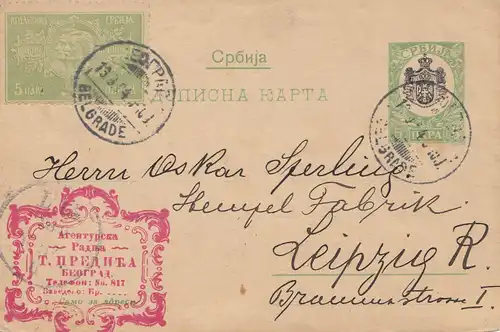 СРБИЈА
5 ПАРА
БЕОГРАД
BELGRADE
Србија
ДОПИСНА КАРТА
СРБИЈА
5 ПАРА
BELGRADE
Herrn Oskar Sperling
Stempel Fabrik.
Leipzig R.
Агентурска
Радња
Т. ПРЕДИЋА
БЕОГРАД.
Телефон: No. 817
Заведено: Бр. ....
Само за адресу